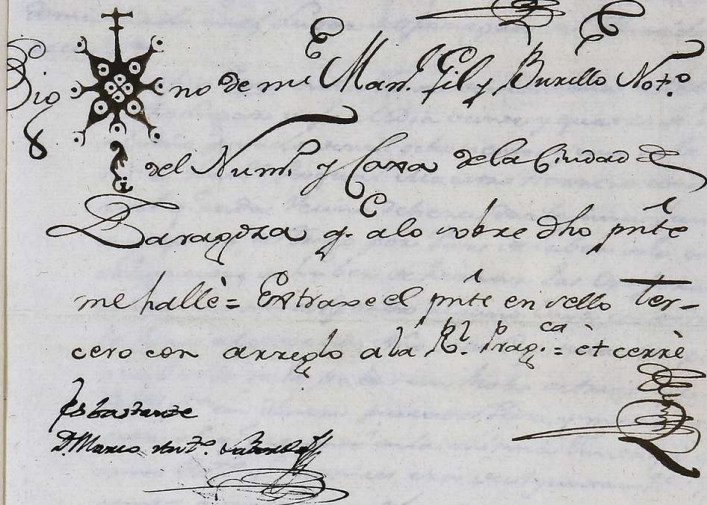 Sig no de mi Man.l Gil y Burillo Not.o
del Num.o y Caxa de la Ciudad de
Zaragoza q. a lo sobre dho pnte
me hallè = Extraxe el pnte en sello ter-
cero con arreglo a la R.l Prag.ca = èt cerrè
Es bastante
D. Marco Ant.o